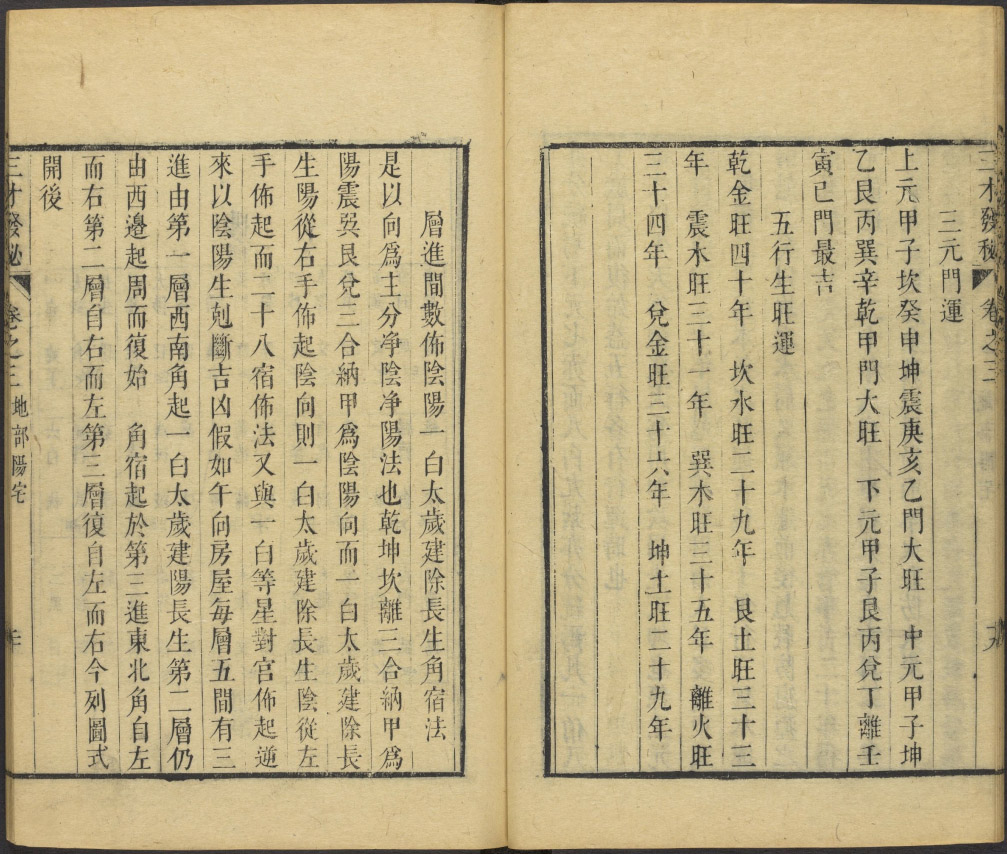 三才發秘 卷之三 十九
三元門運
上元甲子坎癸申坤震庚亥乙門大旺 中元甲子坤
乙艮丙巽辛乾甲門大旺 下元甲子艮丙兌丁離壬
寅巳門最吉
五行生旺運
乾金旺四十年 坎水旺二十九年 艮土旺三十三
年 震木旺三十一年 巽木旺三十五年 離火旺
三十四年 兌金旺三十六年 坤土旺二十九年
層進間數佈陰陽一白太歲建除長生角宿法
是以向爲主分净陰净陽法也乾坤坎離三合納甲爲
陽震巽艮兌三合納甲爲陰陽向而一白太歲建除長
生陽從右手佈起陰向則一白太歲建除長生陰從左
手佈起而二十八宿佈法又與一白等星對宮佈起逆
來以陰陽生剋斷吉凶假如午向房屋每層五間有三
進由第一層西南角起一白太歲建陽長生第二層仍
由西邊起周而復始 角宿起於第三進東北角自左
而右第二層自右而左第三層復自左而右今列圖式
開後
三才發秘 卷之三 地部陽宅